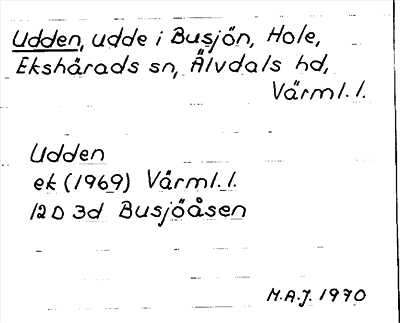 Udden, udde i Busjön, Hole,
Ekshärads sn, Älvdals hd,
Värml. l.
Udden
ek (1969) Värml. l.
12 D 3d Busjöåsen
M.A.J. 1970